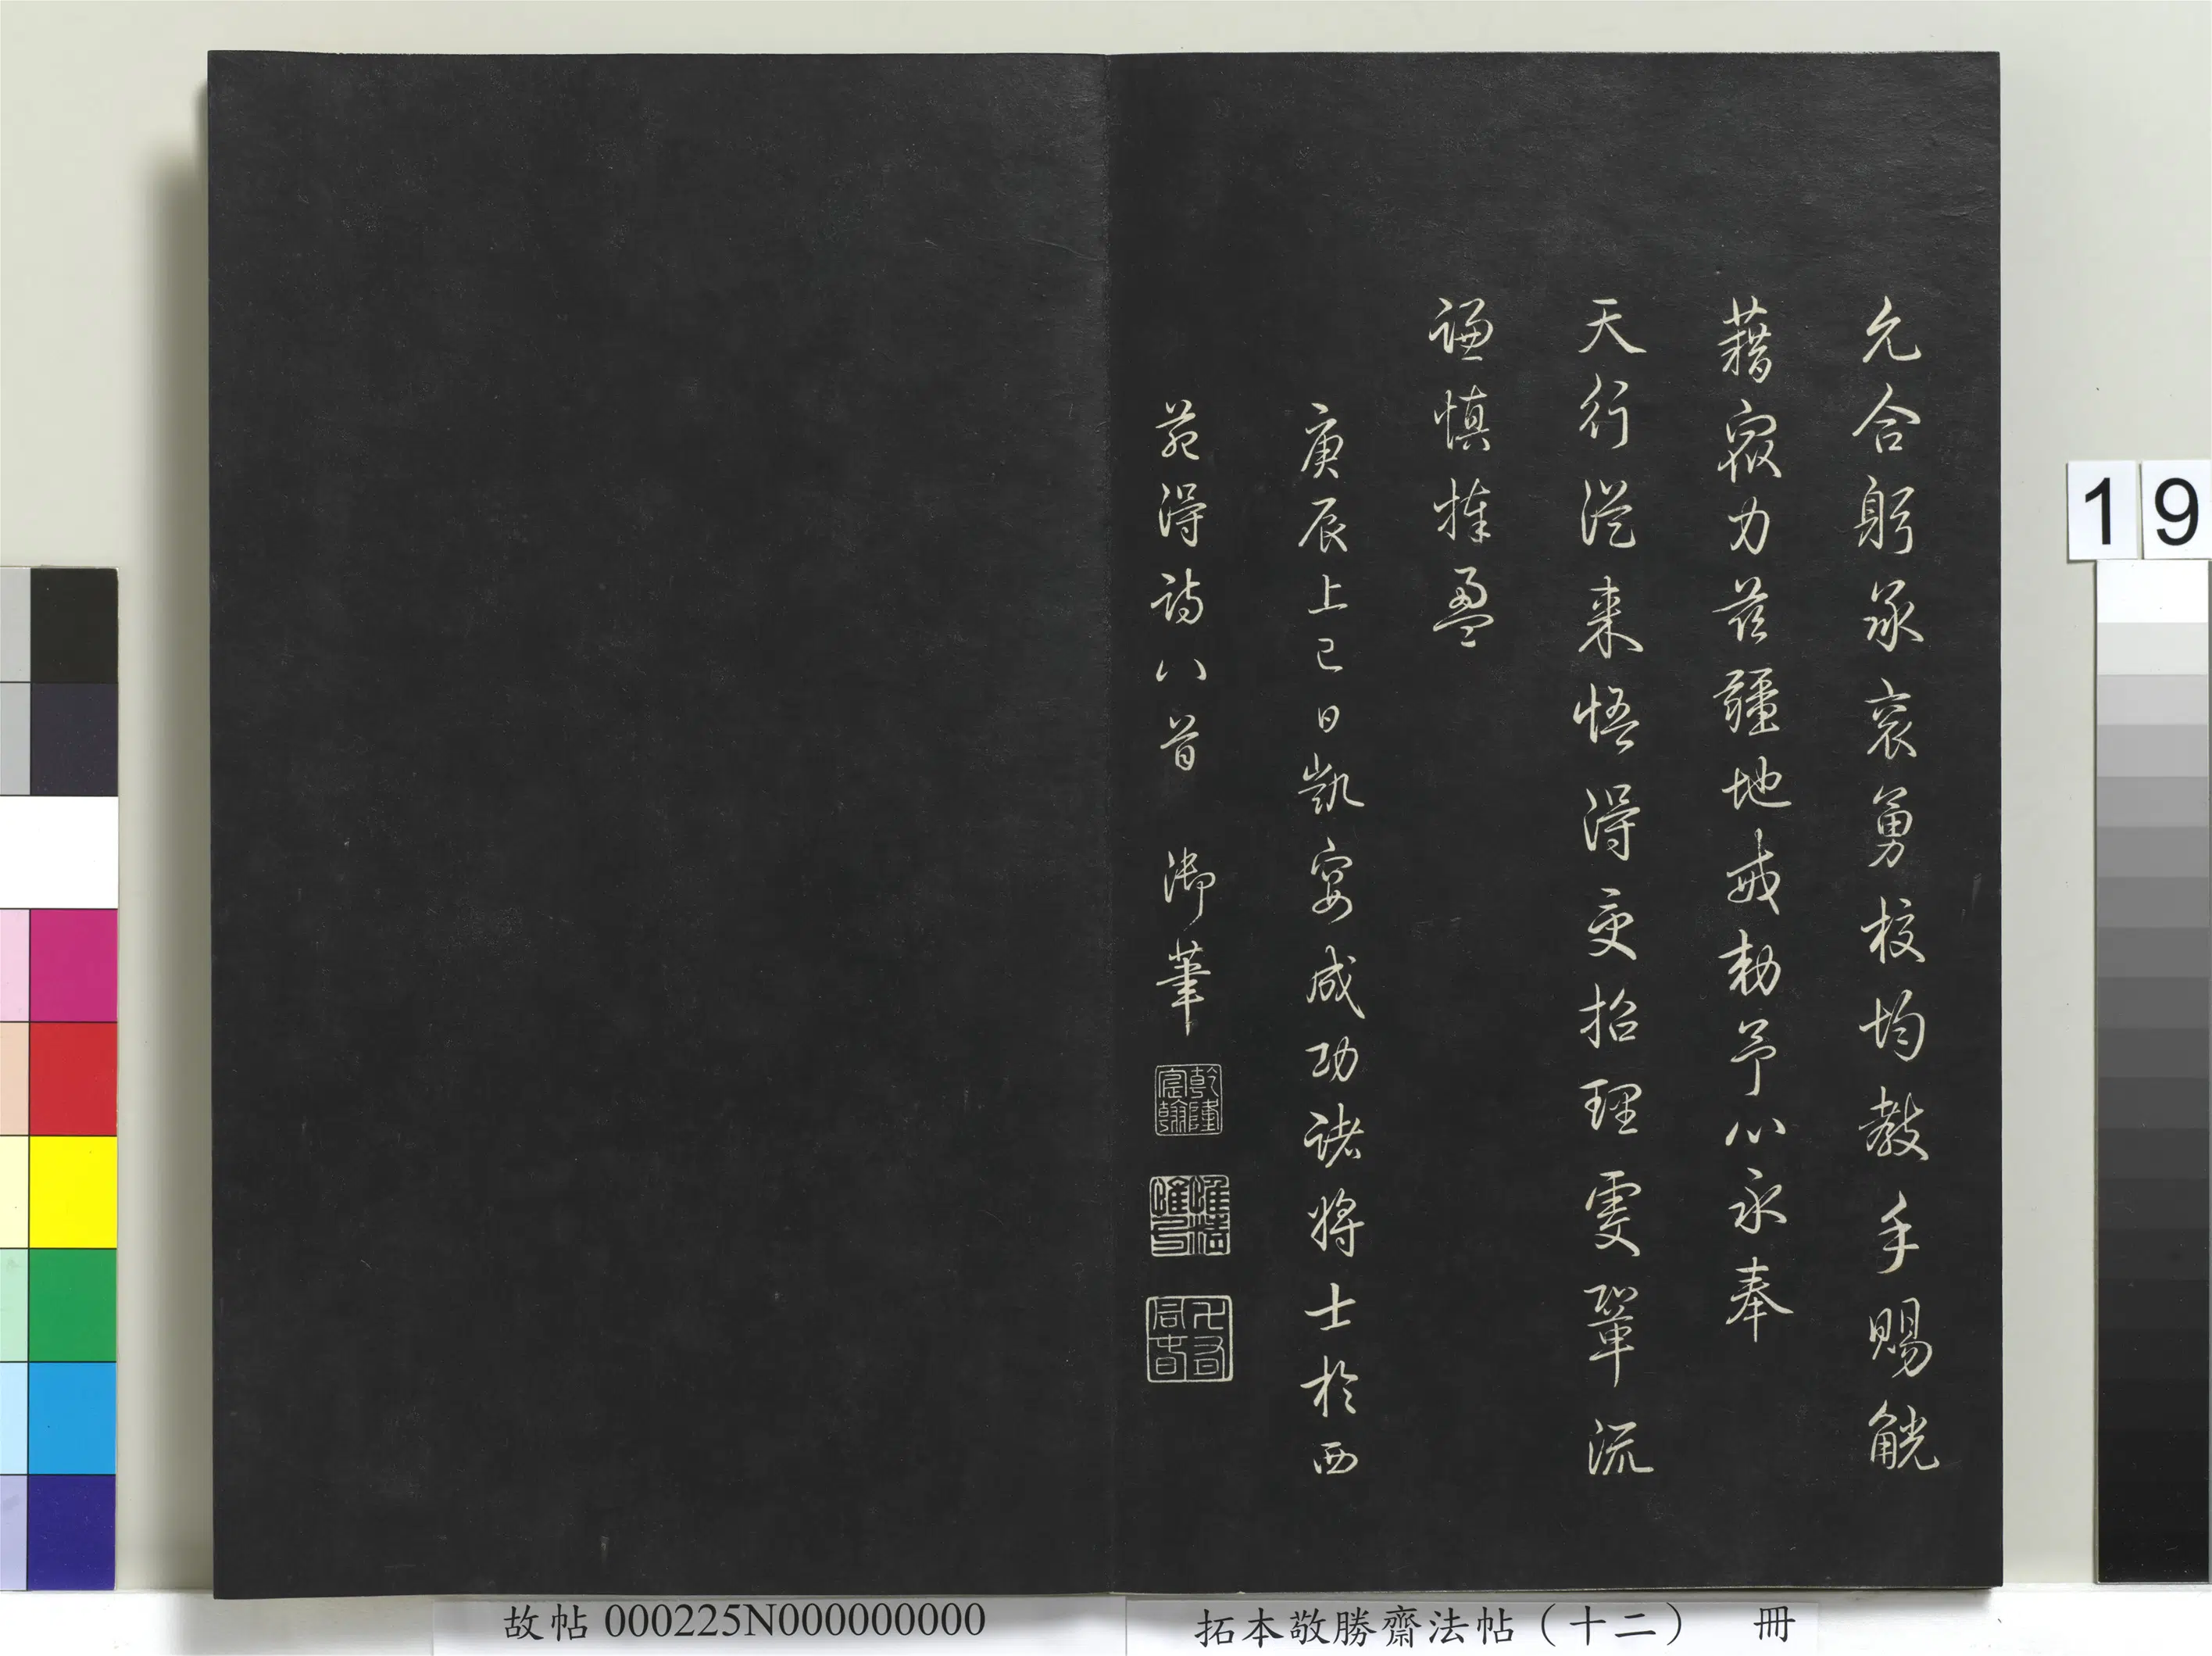 允合躬承衮勇校均教手賜觥
藉力茲疆地戒勅予心永奉
天行從來悟得受招理鞏流
謙慎捧盈
庚辰上巳日凱宴成功諸將士於西
苑得詩八首 御筆
乾隆宸翰
惟精惟一
19
故帖 000225N000000000
拓本敬勝齋法帖(十二) 冊